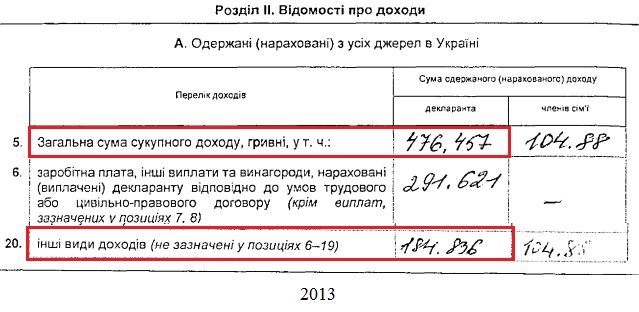 Розділ II. Відомості про доходи
А. Одержані (нараховані) з усіх джерел в Україні
Перелік доходів
Сума одержаного (нарахованого) доходу
декларанта
членів сім'ї
5. Загальна сума сукупного доходу, гривні, у т. ч.: 476,457 104.88
6. заробітна плата, інші виплати та винагороди, нараховані 291.621 –
(виплачені) декларанту відповідно до умов трудового
або цивільно-правового договору (крім виплат,
зазначених у позиціях 7, 8)
20. інші види доходів (не зазначені у позиціях 6–19) 184.836 104.88
2013